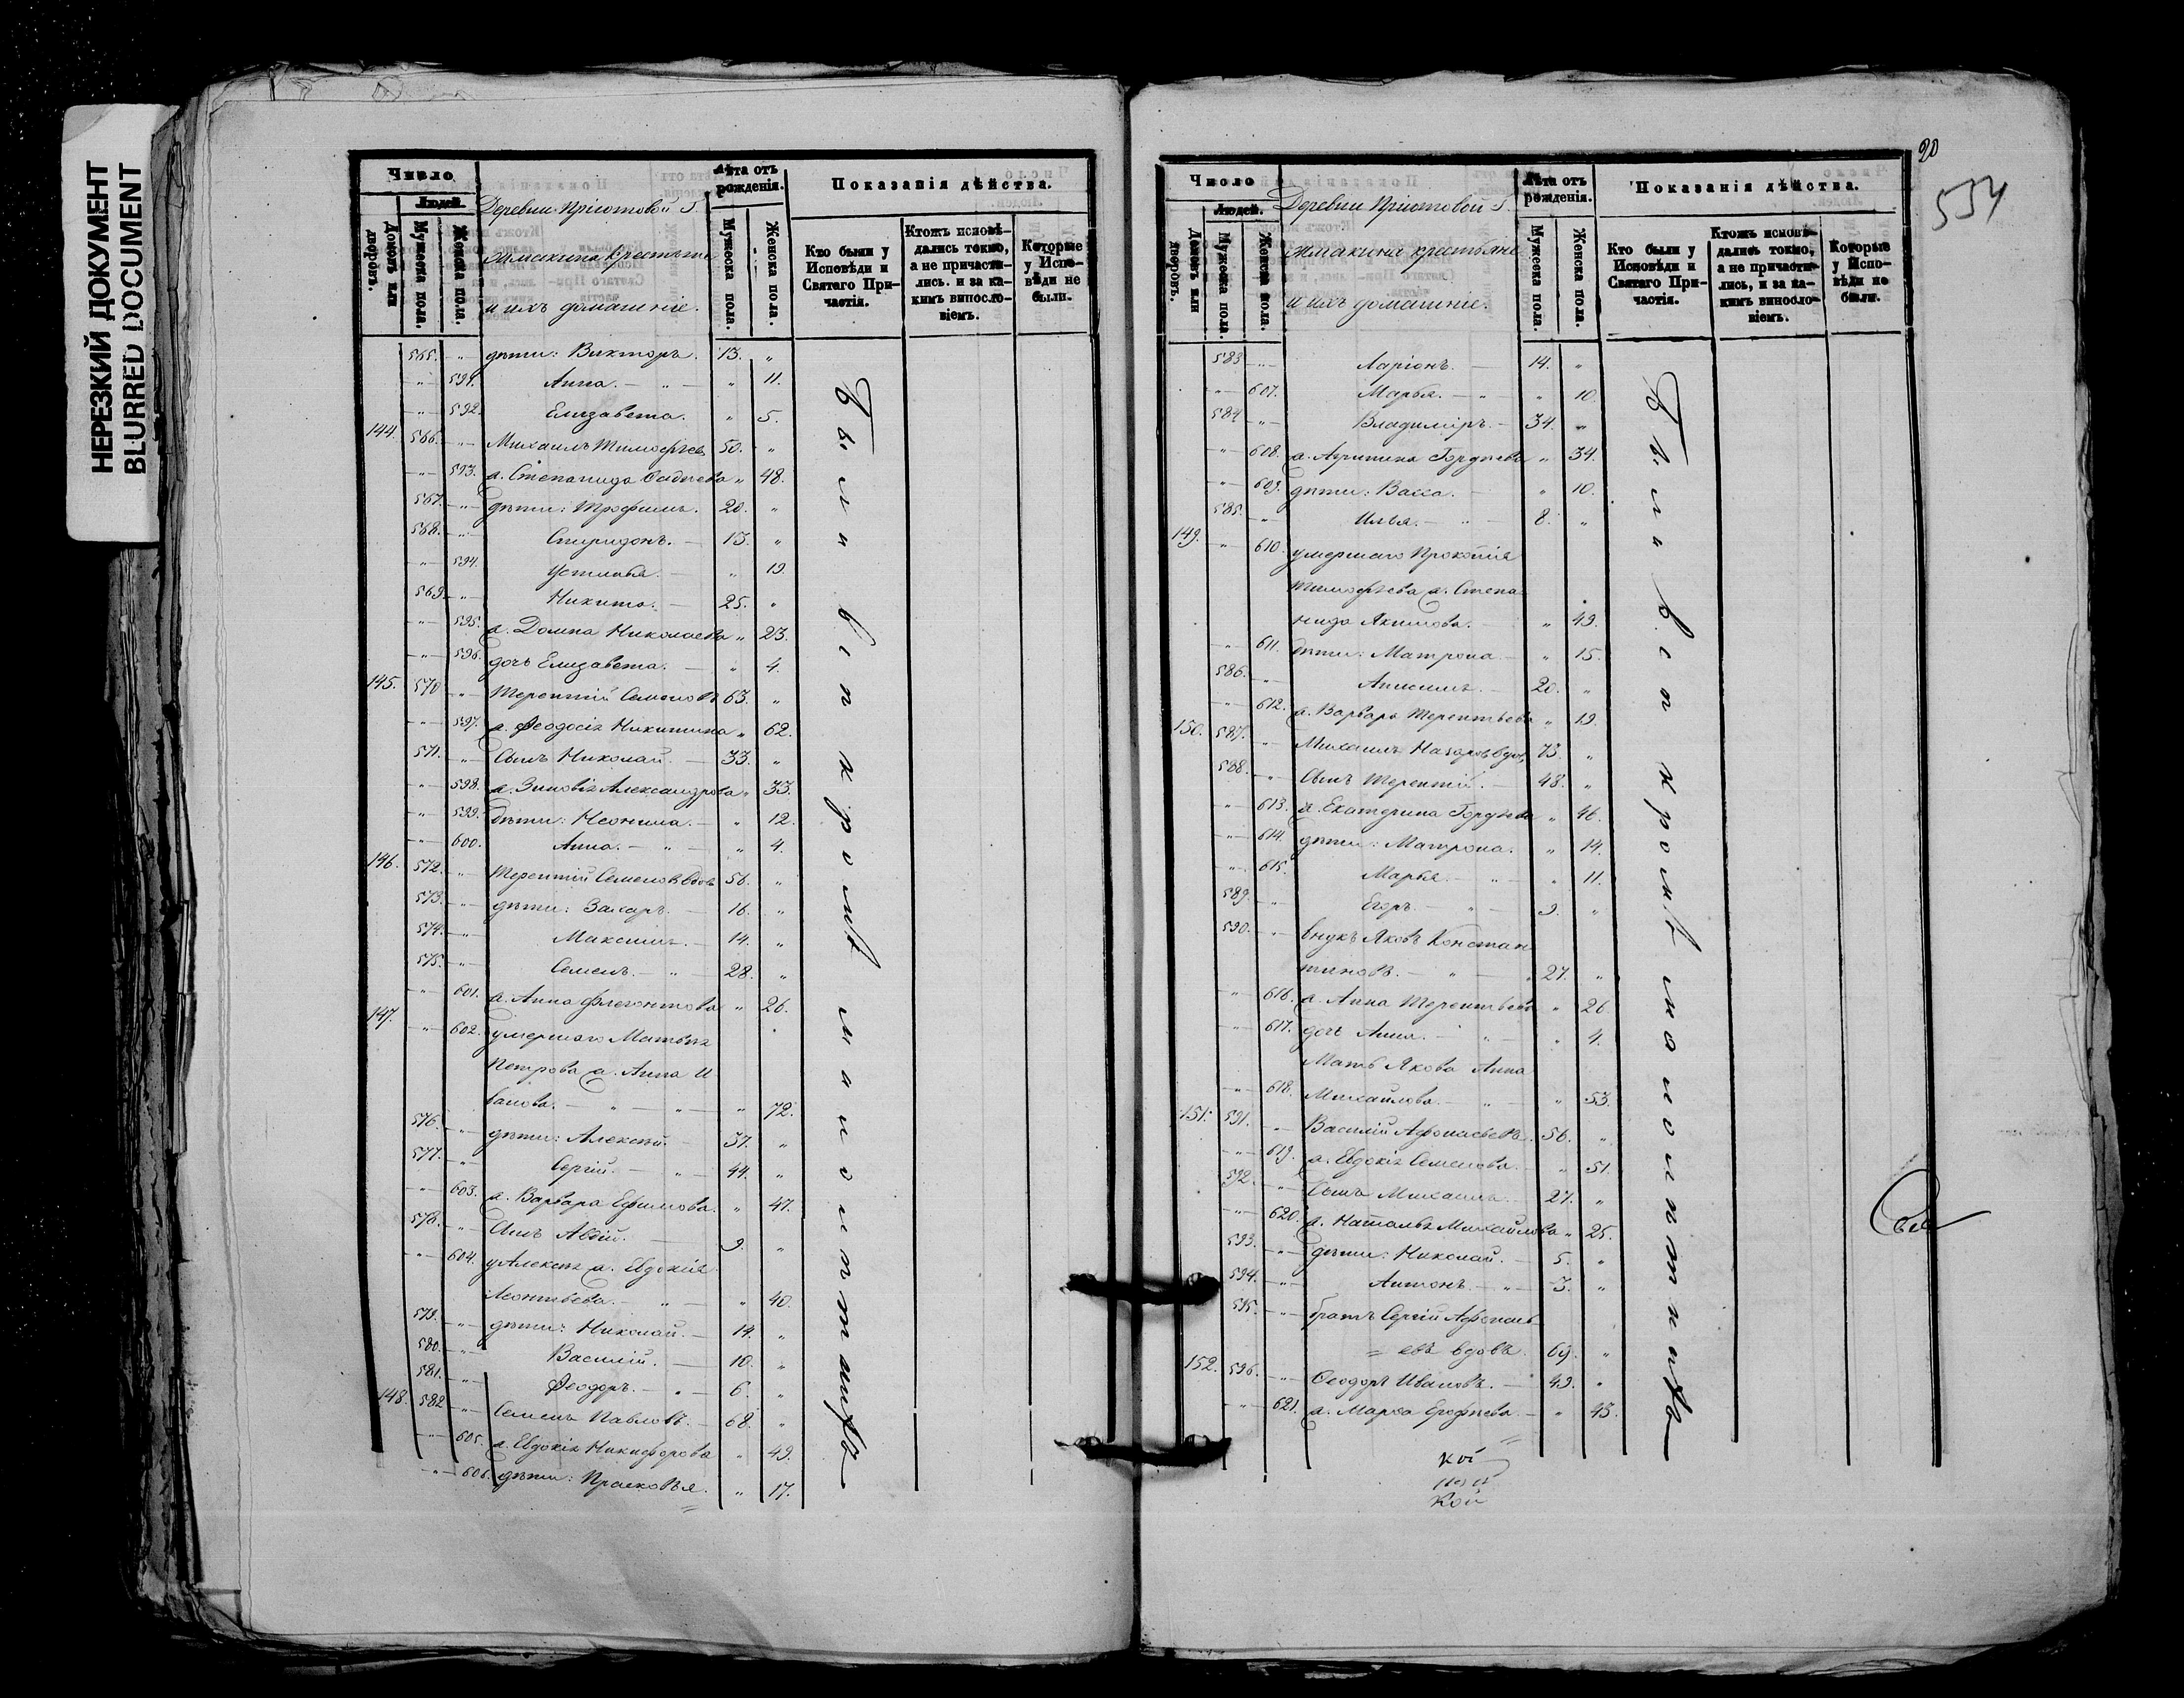 НЕРЕЗКИЙ ДОКУМЕНТ
BLURRED DOCUMENT
Число
Людей.
Домовъ или дворовъ.
Мужеска пола.
Женска пола.
Деревни Пріютовой Г.
Жмакина крестьяне
и ихъ домашніе.
Лѣта отъ рожденія.
Мужеска пола.
Женска пола.
Показанія дѣйства.
Кто были у Исповѣди и Святаго Причастія.
Ктожъ исповѣдались токмо, а не причастились. и за какимъ винословіемъ.
Которые у Исповѣди не были.
565. -"- дѣти: Викторъ. 13. "
-"- 591. Анна. - " - " 11.
-"- 592. Елизавета. " 5.
144. 566. -"- Михаилъ Тимофѣев 50. "
-"- 593. ж. Степанида Фадѣева " 48.
567. -"- дѣти: Трофимъ. 20. "
568. -"- Спиридонъ. - 13. "
-"- 594. Устинья. - " 19.
569. -"- Никита. - 25. "
-"- 595. ж. Домна Николаева " 23.
-"- 596. дочь Елизавета. - " 4.
145. 570 -"- Терентій Семеновъ 63. "
-"- 597. ж. Феодосія Никитина " 62.
571. -"- Сынъ Николай. - 33. "
-"- 598. ж. Зиновія Александрова " 33.
-"- 599. дѣти: Неонила. - " 12.
-"- 600. Анна. - " - " 4.
146. 572. -"- Терентій Семеновъ вдов 56. "
573. -"- дѣти: Захаръ. - 16. "
574. -"- Максимъ. - 14. "
575. -"- Семенъ. - " - 28. "
-"- 601. ж. Анна Флегонтова " 26.
147. -"- 602. умершаго Матвѣя
Петрова ж. Анна И-
ванова. - " - " - " 72.
576. -"- дѣти: Алексѣй. - 37. "
577. -"- Сергій. - " - 44. "
-"- 603. ж. Варвара Ефимова. " 47.
578. -"- Сынъ Авдій. - 9. "
-"- 604. у Алексѣя ж. Евдокія
Леонтьева. - " - " 40.
579. -"- дѣти: Николай. - 14. "
580. -"- Василій. - 10. "
581. -"- Феодоръ. - " - 6. "
148. 582 -"- Семенъ Павловъ. - 68. "
-"- 605. ж. Евдокія Никифорова " 49.
-"- 606. дѣти: Прасковья. " 17.
Были в исп кромѣ малолѣтнихъ
20
534
Число
Людей.
Домовъ или дворовъ.
Мужеска пола.
Женска пола.
Деревни Пріютовой Г.
Жмакина крестьяне
и ихъ домашніе.
Лѣта отъ рожденія.
Мужеска пола.
Женска пола.
Показанія дѣйства.
Кто были у Исповѣди и Святаго Причастія.
Ктожъ исповѣдались токмо, а не причастились, и за какимъ винословіемъ.
Которые у Исповѣди не были.
583 -"- Ларіонъ. - 14. "
-"- 607. Марья. - " - " 10.
584 -"- Владиміръ. - 34. "
-"- 608. ж. Агрипина Гордѣева " 34.
-"- 609. дѣти: Васса. - " 10.
585. -"- Илья. - " - 8. "
149. -"- 610. умершаго Прокопія
Тимофѣева ж. Степа-
нида Якимова. - " 49.
-"- 611. дѣти: Матрона. - " 15.
586. -"- Анисимъ. - 20. "
-"- 612. ж. Варвара Терентьева " 19.
150. 587. -"- Михаилъ Назаров вдов. 73. "
588. -"- Сынъ Терентій. - 48. "
-"- 613. ж. Екатерина Гордѣева " 46.
-"- 614. дѣти: Матрона. " 14.
-"- 615. Марья. - " - " 11.
589. -"- Егоръ. - " - 9. "
590. -"- внукъ Яковъ Констан-
тиновъ. - " - 27. "
-"- 616. ж. Анна Терентьева " 26.
-"- 617. дочь Анна. - " - " 4.
Мать Якова Анна
-"- 618. Михайлова. - " - " 53.
151. 591. -"- Василій Афонасьевъ. 56. "
-"- 619. ж. Евдокія Семенова. - " 51.
592. -"- Сынъ Михаилъ. - 27. "
-"- 620. ж. Наталья Михайлова " 25.
593. -"- дѣти: Николай. - 5. "
594. -"- Антонъ. - " - 3. "
595. -"- братъ Сергій Афонась-
= евъ вдовъ. 69. "
152. 596. -"- Феодоръ Ивановъ. - 49. "
-"- 621. ж. Марѳа Ерофѣева. - " 43.
Были в исп кромѣ малолѣтнихъ
кой